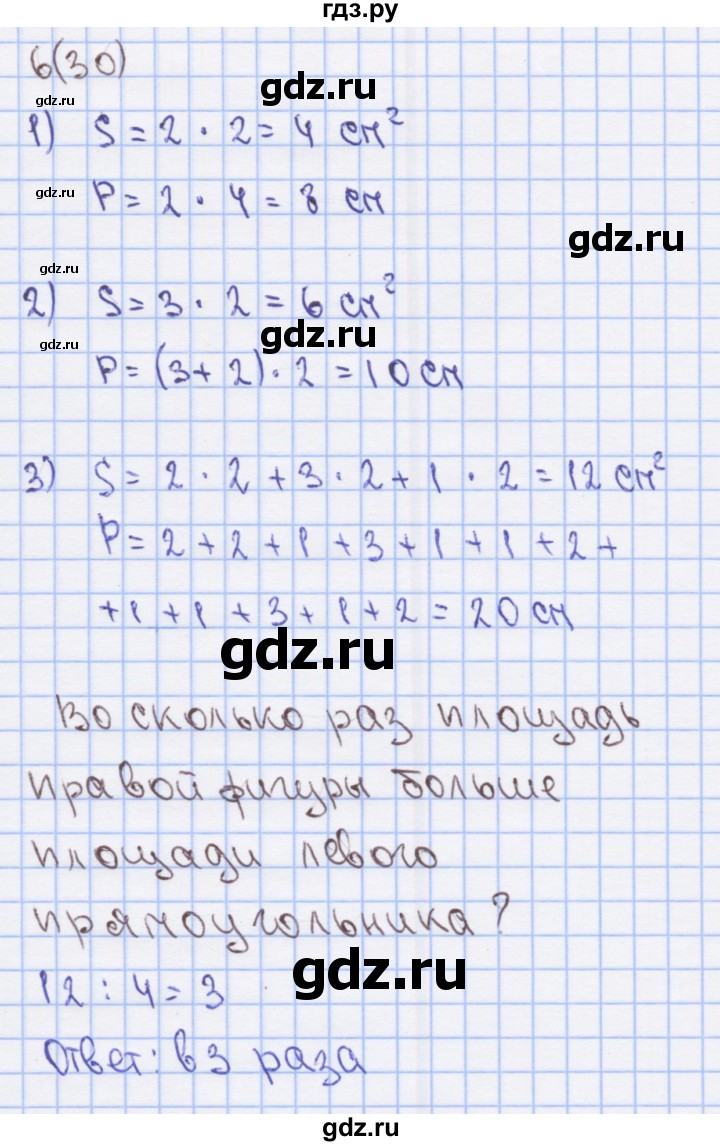 гдз.ру
6(30)
gdz.ru
gdz.ru
1) S = 2 · 2 = 4 см²
gdz.ru
P = 2 · 4 = 8 см
gdz.ru
gdz.ru
2) S = 3 · 2 = 6 см²
gdz.ru
gdz.ru
P = (3 + 2) · 2 = 10 см
3) S = 2 · 2 + 3 · 2 + 1 · 2 = 12 см²
P = 2 + 2 + 1 + 3 + 1 + 1 + 2 +
+ 1 + 1 + 3 + 1 + 2 = 20 см
gdz.ru
Во сколько раз площадь
правой фигуры больше
площади левого
прямоугольника?
gdz.ru
12 : 4 = 3
Ответ: в 3 раза
gdz.ru